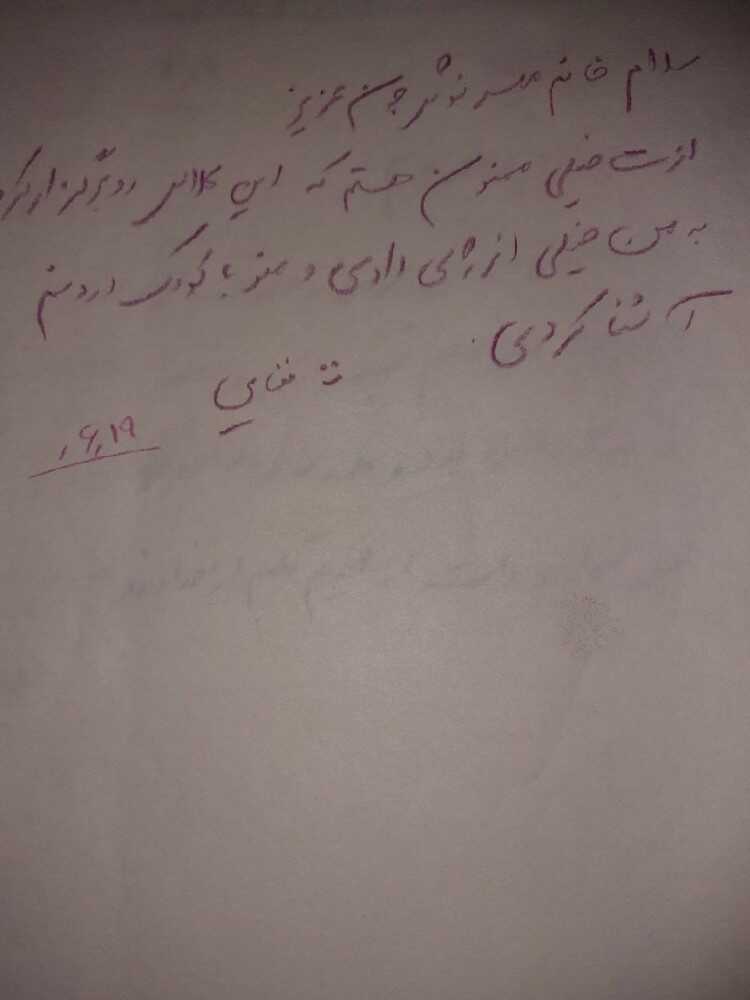 سلام خانم مهرنوش جان عزیز
ازت خیلی ممنون هستم که این کلاس رو برگزار کردی
به من خیلی انرژی دادی و منو با کودک درونم
آشنا کردی.
۶،۱۹،